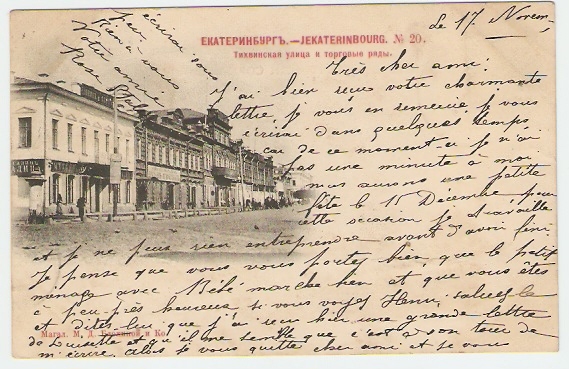 Le 17 Novem
ЕКАТЕРИНБУРГЪ.—JEKATERINBOURG. № 20.
Тихвинская улица и торговые ряды.
Très cher ami.
J'ai bien reçu votre charmante
lettre, je vous en remercie je vous
écrirai dans quelques temps
car de ce moment-ci je n'ai
pas une minute à moi
nous aurons une petite
fête le 15 Décembre, pour
cette occasion je travaille
et je ne puis rien entreprendre avant d'avoir fini
Je pense que vous vous portez bien, que le petit
ménage avec Bébé marche bien et que vous êtes
à peu près heureux si vous voyez Henri, saluez le
et dites lui que j'ai reçu hier une grande lettre
de Louisette et qu'il me semble que c'est à son tour de
m'écrire. Alors je vous quitte cher ami et je vous
écrirai sous
peu
Bien à vous
Votre amie
Магаз. М. Д. и Ко.